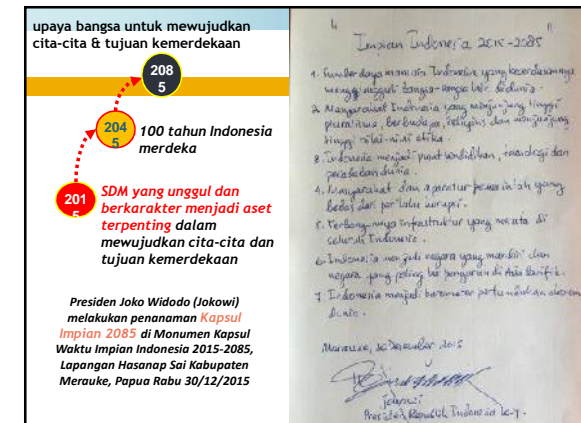 upaya bangsa untuk mewujudkan
cita-cita & tujuan kemerdekaan
208
5
204
5
100 tahun Indonesia
merdeka
201
5
SDM yang unggul dan
berkarakter menjadi aset
terpenting dalam
mewujudkan cita-cita dan
tujuan kemerdekaan
Presiden Joko Widodo (Jokowi)
melakukan penanaman Kapsul
Impian 2085 di Monumen Kapsul
Waktu Impian Indonesia 2015-2085,
Lapangan Hasanap Sai Kabupaten
Merauke, Papua Rabu 30/12/2015
Impian Indonesia 2015-2085
1. Sumber daya manusia Indonesia yang kecerdasannya
mengungguli bangsa-bangsa lain di dunia.
2. Masyarakat Indonesia yang menjunjung tinggi
pluralisme, berbudaya, religius dan menjunjung
tinggi nilai-nilai etika.
3. Indonesia menjadi pusat pendidikan, teknologi dan
peradaban dunia.
4. Masyarakat dan aparatur pemerintah yang
bebas dari perilaku korupsi.
5. Terbangunnya infrastruktur yang merata di
seluruh Indonesia.
6. Indonesia menjadi negara yang mandiri dan
negara yang paling berpengaruh di Asia Pasifik.
7. Indonesia menjadi barometer pertumbuhan ekonomi
dunia.
Merauke, 30 Desember 2015
Jokowi
Presiden Republik Indonesia ke-7.